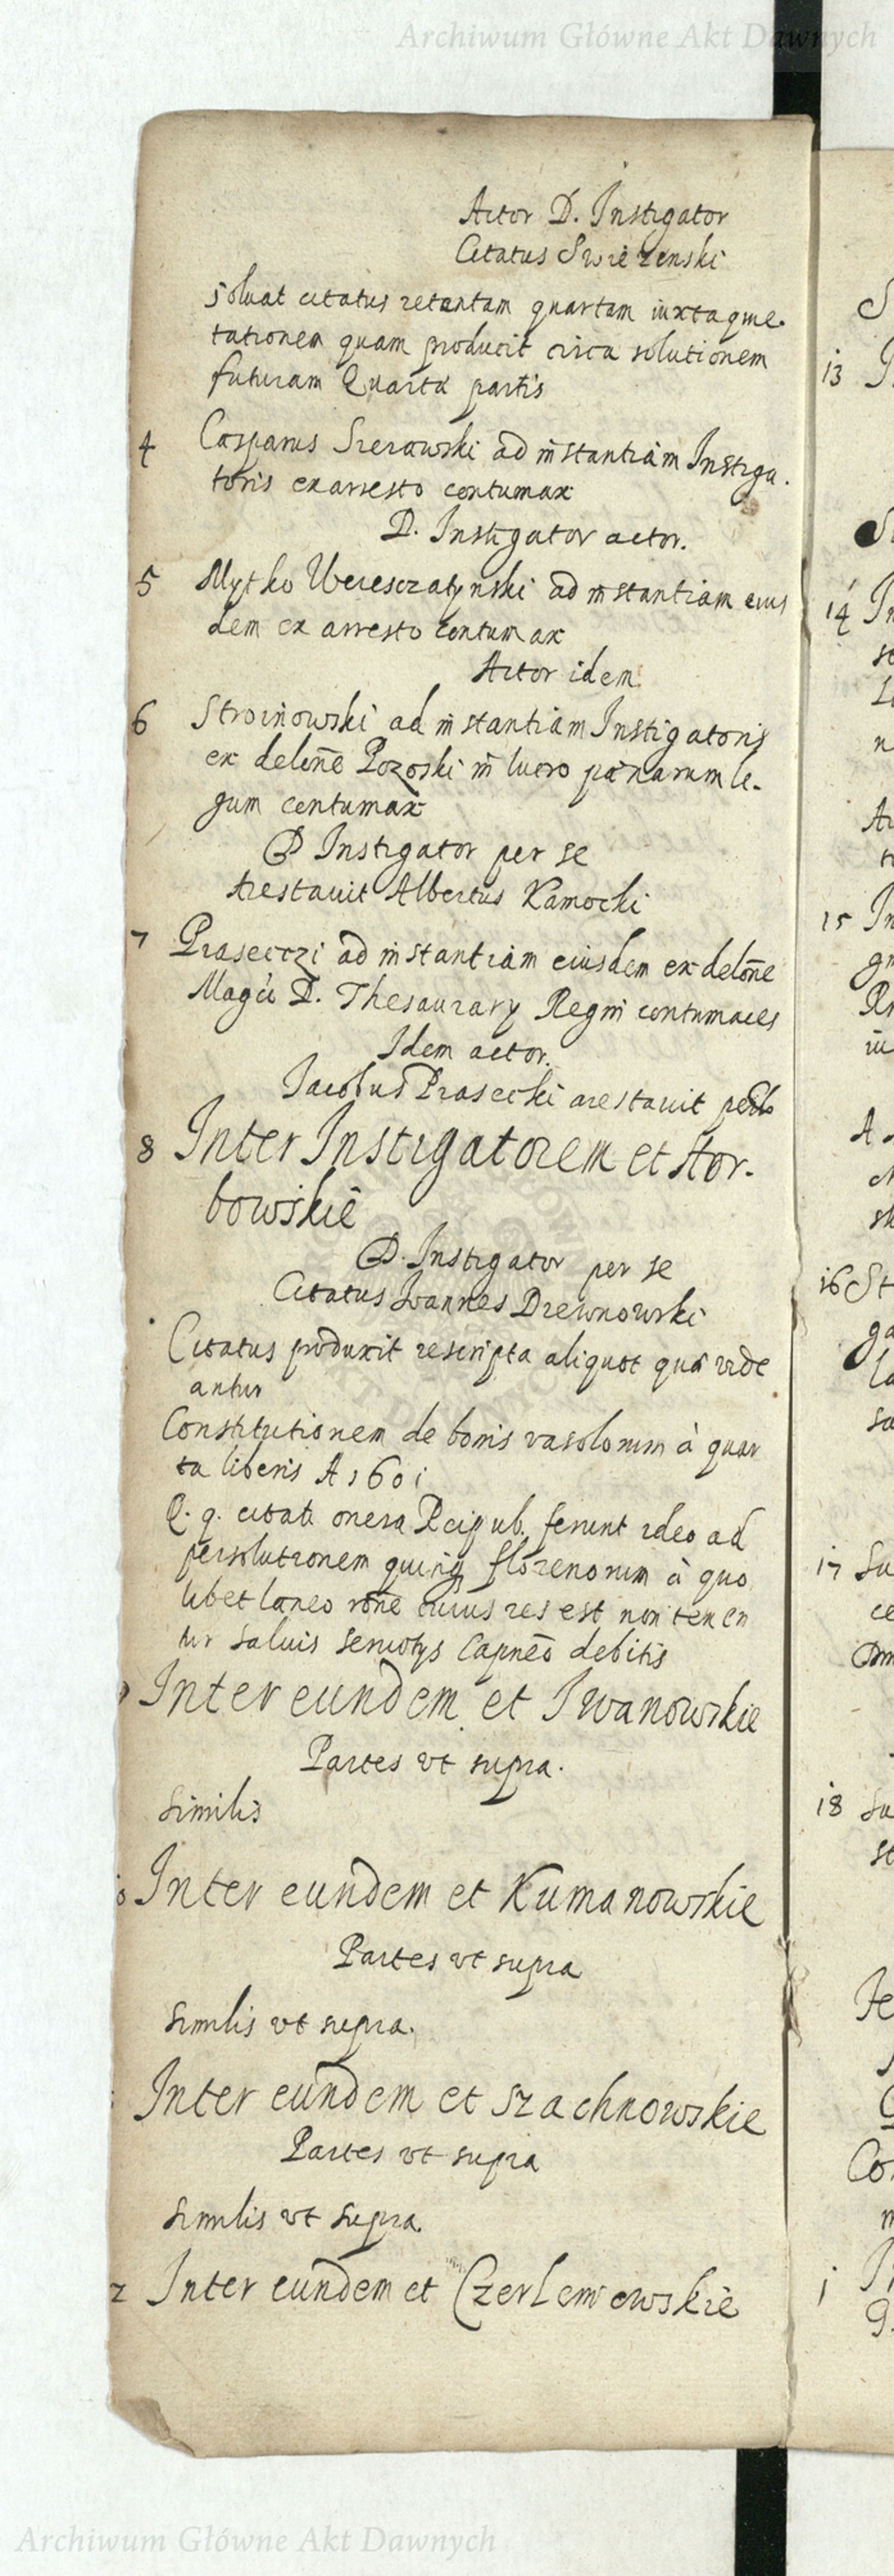 Archiwum Główne Akt Dawnych
Actor D. Instigator
Citatus Swierzenski
Soluat citatus retentam quartam iuxta quie-
tationem quam producit circa solutionem
futuram Quartæ partis
4 Casparus Sierawski ad instantiam Instiga-
toris ex arresto contumax
D. Instigator actor.
5 Mytko Weresczatynski ad instantiam eius
dem ex arresto contumax
Actor idem
6 Stroinowski ad instantiam Instigatoris
ex delōne Pozoski in lucro pænarum le-
gum contumax
D Instigator per se
Arestauit Albertus Kamocki
7 Piaseczi ad instantiam eiusdem ex delōne
Magci D. Thesaurary Regni contumaces
Idem actor.
Iacobus Piasecki arestauit
8 Inter Instigatorem et Stor-
bowskie
D. Instigator per se
Citatus Ioannes Drewnowski
Citatus produxit rescripta aliquot quæ vide
antur
Constitutionem de bonis vasolorum à quar
ta liberis A 1601
Q. q. citati onera Reipub. ferunt ideo ad
persolutionem quinq florenorum à quo
libet laneo rōne cuius res est non tenen
tur saluis seruitys Capneo debitis
9 Inter eundem et Iwanowskie
Partes vt supra.
Similis
10 Inter eundem et Kumanowskie
Partes vt supra
Similis vt supra.
Inter eundem et Szachnowskie
Partes vt supra
Similis vt supra.
2 Inter eundem et Czerlemiewskie
13
14
15
16
17
18
Archiwum Główne Akt Dawnych